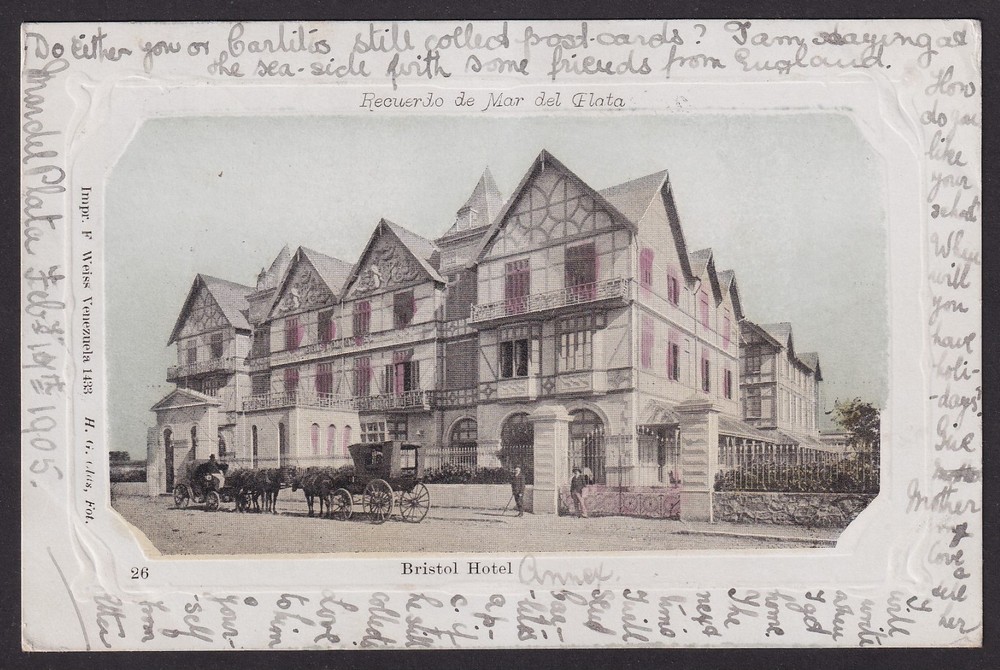 Do either you or Carlitos still collect post-cards? I am staying at
the sea-side with some friends from England.
Recuerdo de Mar del Plata
How
do you
like
your
school
When
will
you
have
holi-
-days?
Give
Mother
my
love
&
tell
her
I
will
write
when
I get
home.
The
next
time
I will
send
Car-
-litos
a p-
c. if
he still
collects
Love
to him
&
your-
-self
from
Mar del Plata Feb 10th 1905.
Impr. F Weiss Venezuela 1433 H. G. Olds, Fot.
26
Bristol Hotel Annex.